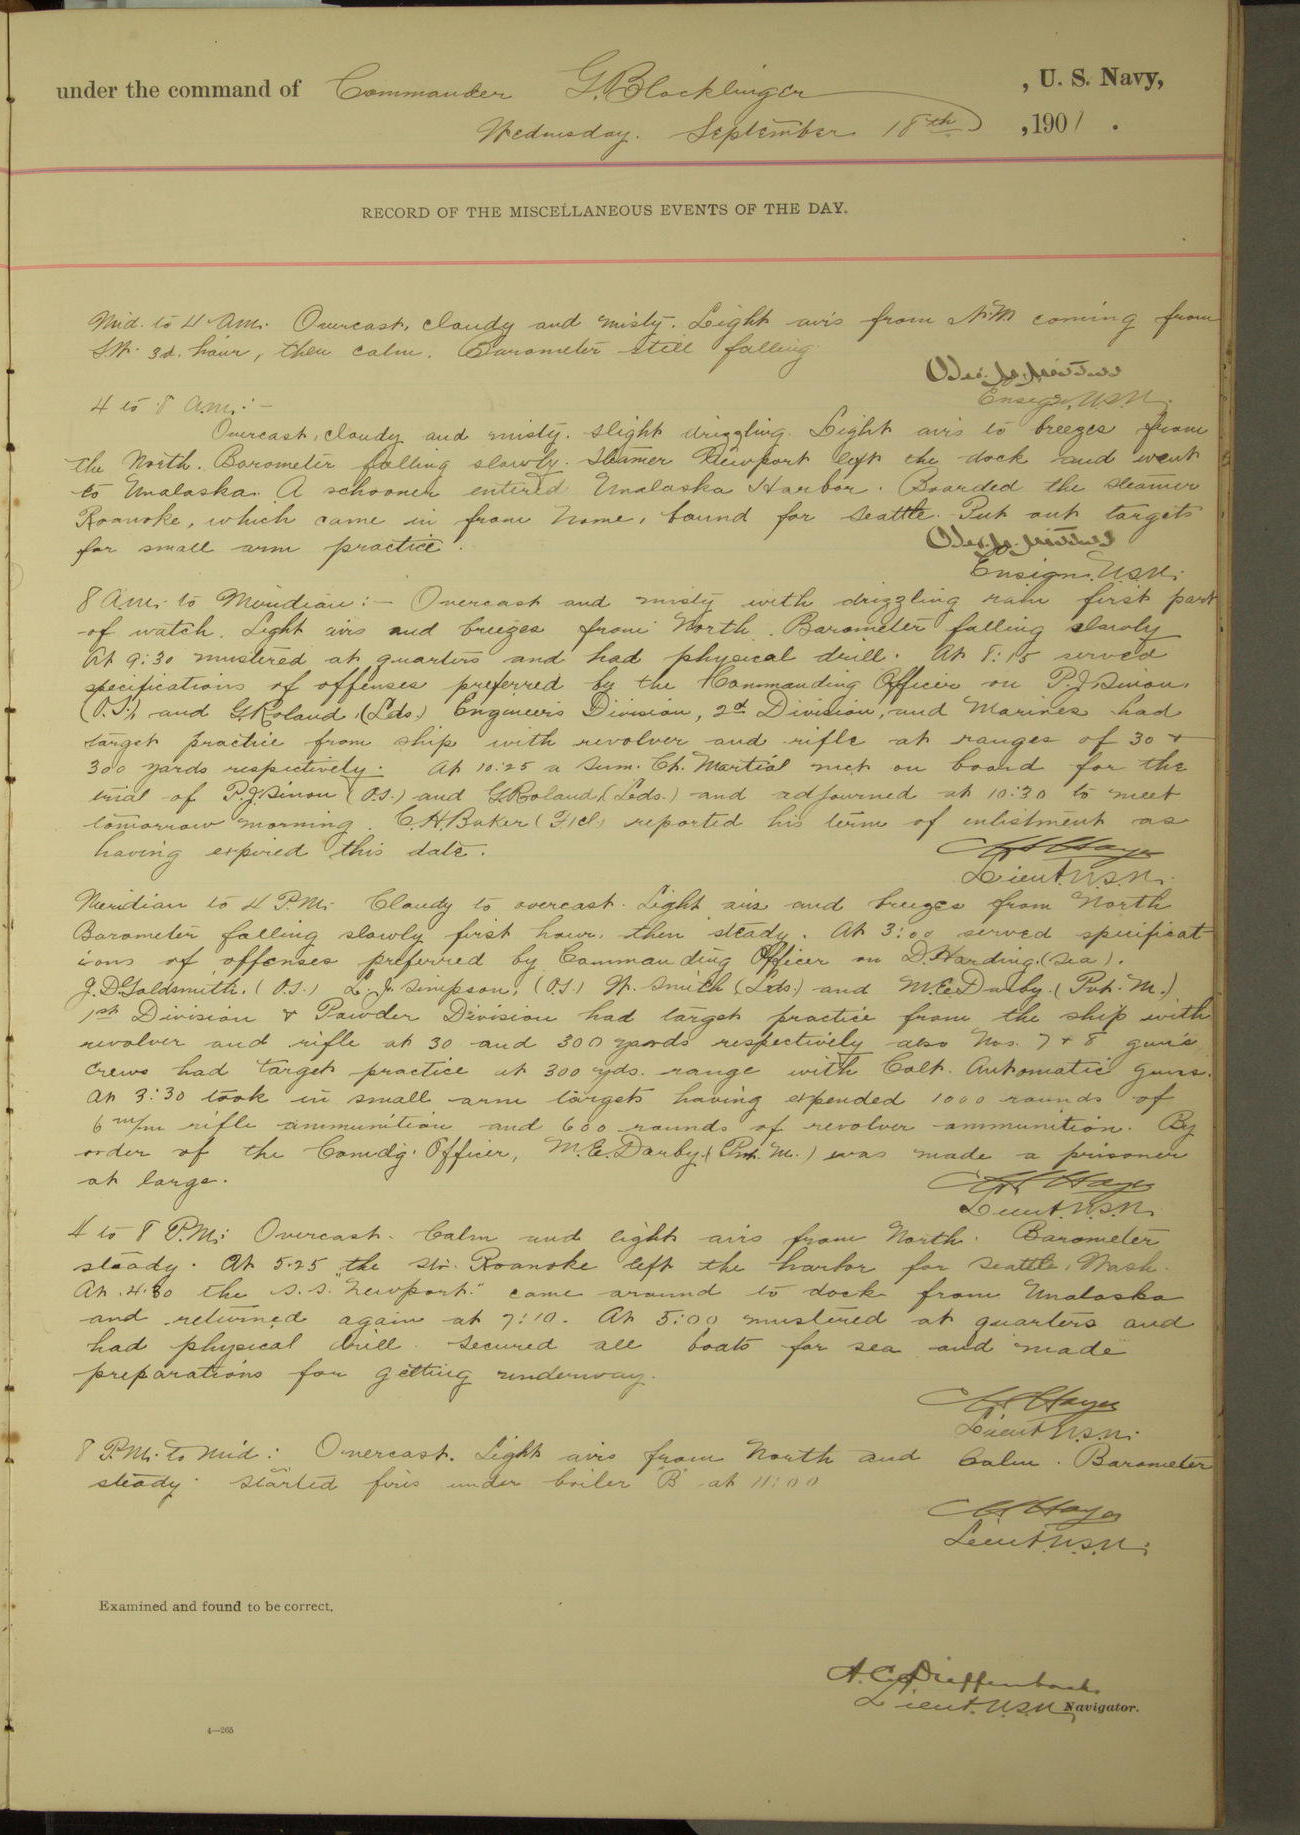 under the command of Commander G. Blocklinger, U. S. Navy,
Wednesday. September 18th, 1901.
RECORD OF THE MISCELLANEOUS EVENTS OF THE DAY.
Mid. to 4 A.M. Overcast, cloudy and misty. Light airs from N.W. coming from
S.W. 3d. hour, then calm. Barometer still falling.
Ensign, U.S.N.
4 to 8 A.M.:-
Overcast, cloudy and misty. Slight drizzling. Light airs to breezes from
the North. Barometer falling slowly. Steamer Newport left the dock and went
to Unalaska. A schooner entered Unalaska Harbor. Boarded the steamer
Roanoke, which came in from Nome, bound for Seattle. Put out targets
for small arm practice.
Ensign. U.S.N.
8 A.M. to Meridian:- Overcast and misty with drizzling rain first part
of watch. Light airs and breezes from North. Barometer falling slowly
At 9:30 mustered at quarters and had physical drill. At 8:15 served
specifications of offenses preferred by the Commanding Officer on P.J. Simon,
(O.S.) and G. Roland, (Lds.) Engineer's Division, 2d Division, and Marines had
target practice from ship with revolver and rifle at ranges of 30 +
300 yards respectively. At 10:25 a Sum. Ct. Martial met on board for the
trial of P.J. Simon (O.S.) and G. Roland, (Lds.) and adjourned at 10:30 to meet
tomorrow morning. C.H. Baker (F1cl.) reported his term of enlistment as
having expired this date.
Hayes
Lieut. U.S.N.
Meridian to 4 P.M. Cloudy to overcast. Light airs and breezes from North
Barometer falling slowly first hour, then steady. At 3:00 served specificat
ions of offenses preferred by Commanding Officer on D. Harding. (Sea).
J.D. Goldsmith. (O.S.) L.J. Simpson, (O.S.) W. Smith (Lds.) and M.E. Darby. (Pvt. M.)
1st Division + Powder Division had target practice from the ship with
revolver and rifle at 30 and 300 yards respectively also Nos. 7 + 8 gun's
crews had target practice at 300 yds. range with Colt. Automatic guns.
At 3:30 took in small arm targets having expended 1000 rounds of
6 m/m rifle ammunition and 600 rounds of revolver ammunition. By
order of the Comdg. Officer, M.E. Darby, (Pvt. M.) was made a prisoner
at large.
Hayes
Lieut. U.S.N.
4 to 8 P.M: Overcast. Calm and light airs from North. Barometer
steady. At 5.25 the Str. Roanoke left the harbor for Seattle, Wash.
At 4.30 the S.S. "Newport" came around to dock from Unalaska
and returned again at 7:10. At 5:00 mustered at quarters and
had physical drill. Secured all boats for sea and made
preparations for getting underway.
Hayes
Lieut. U.S.N.
8 P.M. to Mid: Overcast. Light airs from North and Calm. Barometer
steady. Started fires under boiler "B" at 11:00
Hayes
Lieut. U.S.N.
Examined and found to be correct.
A. C. Dieffenbach
Lieut. U.S.N., Navigator.
4—265